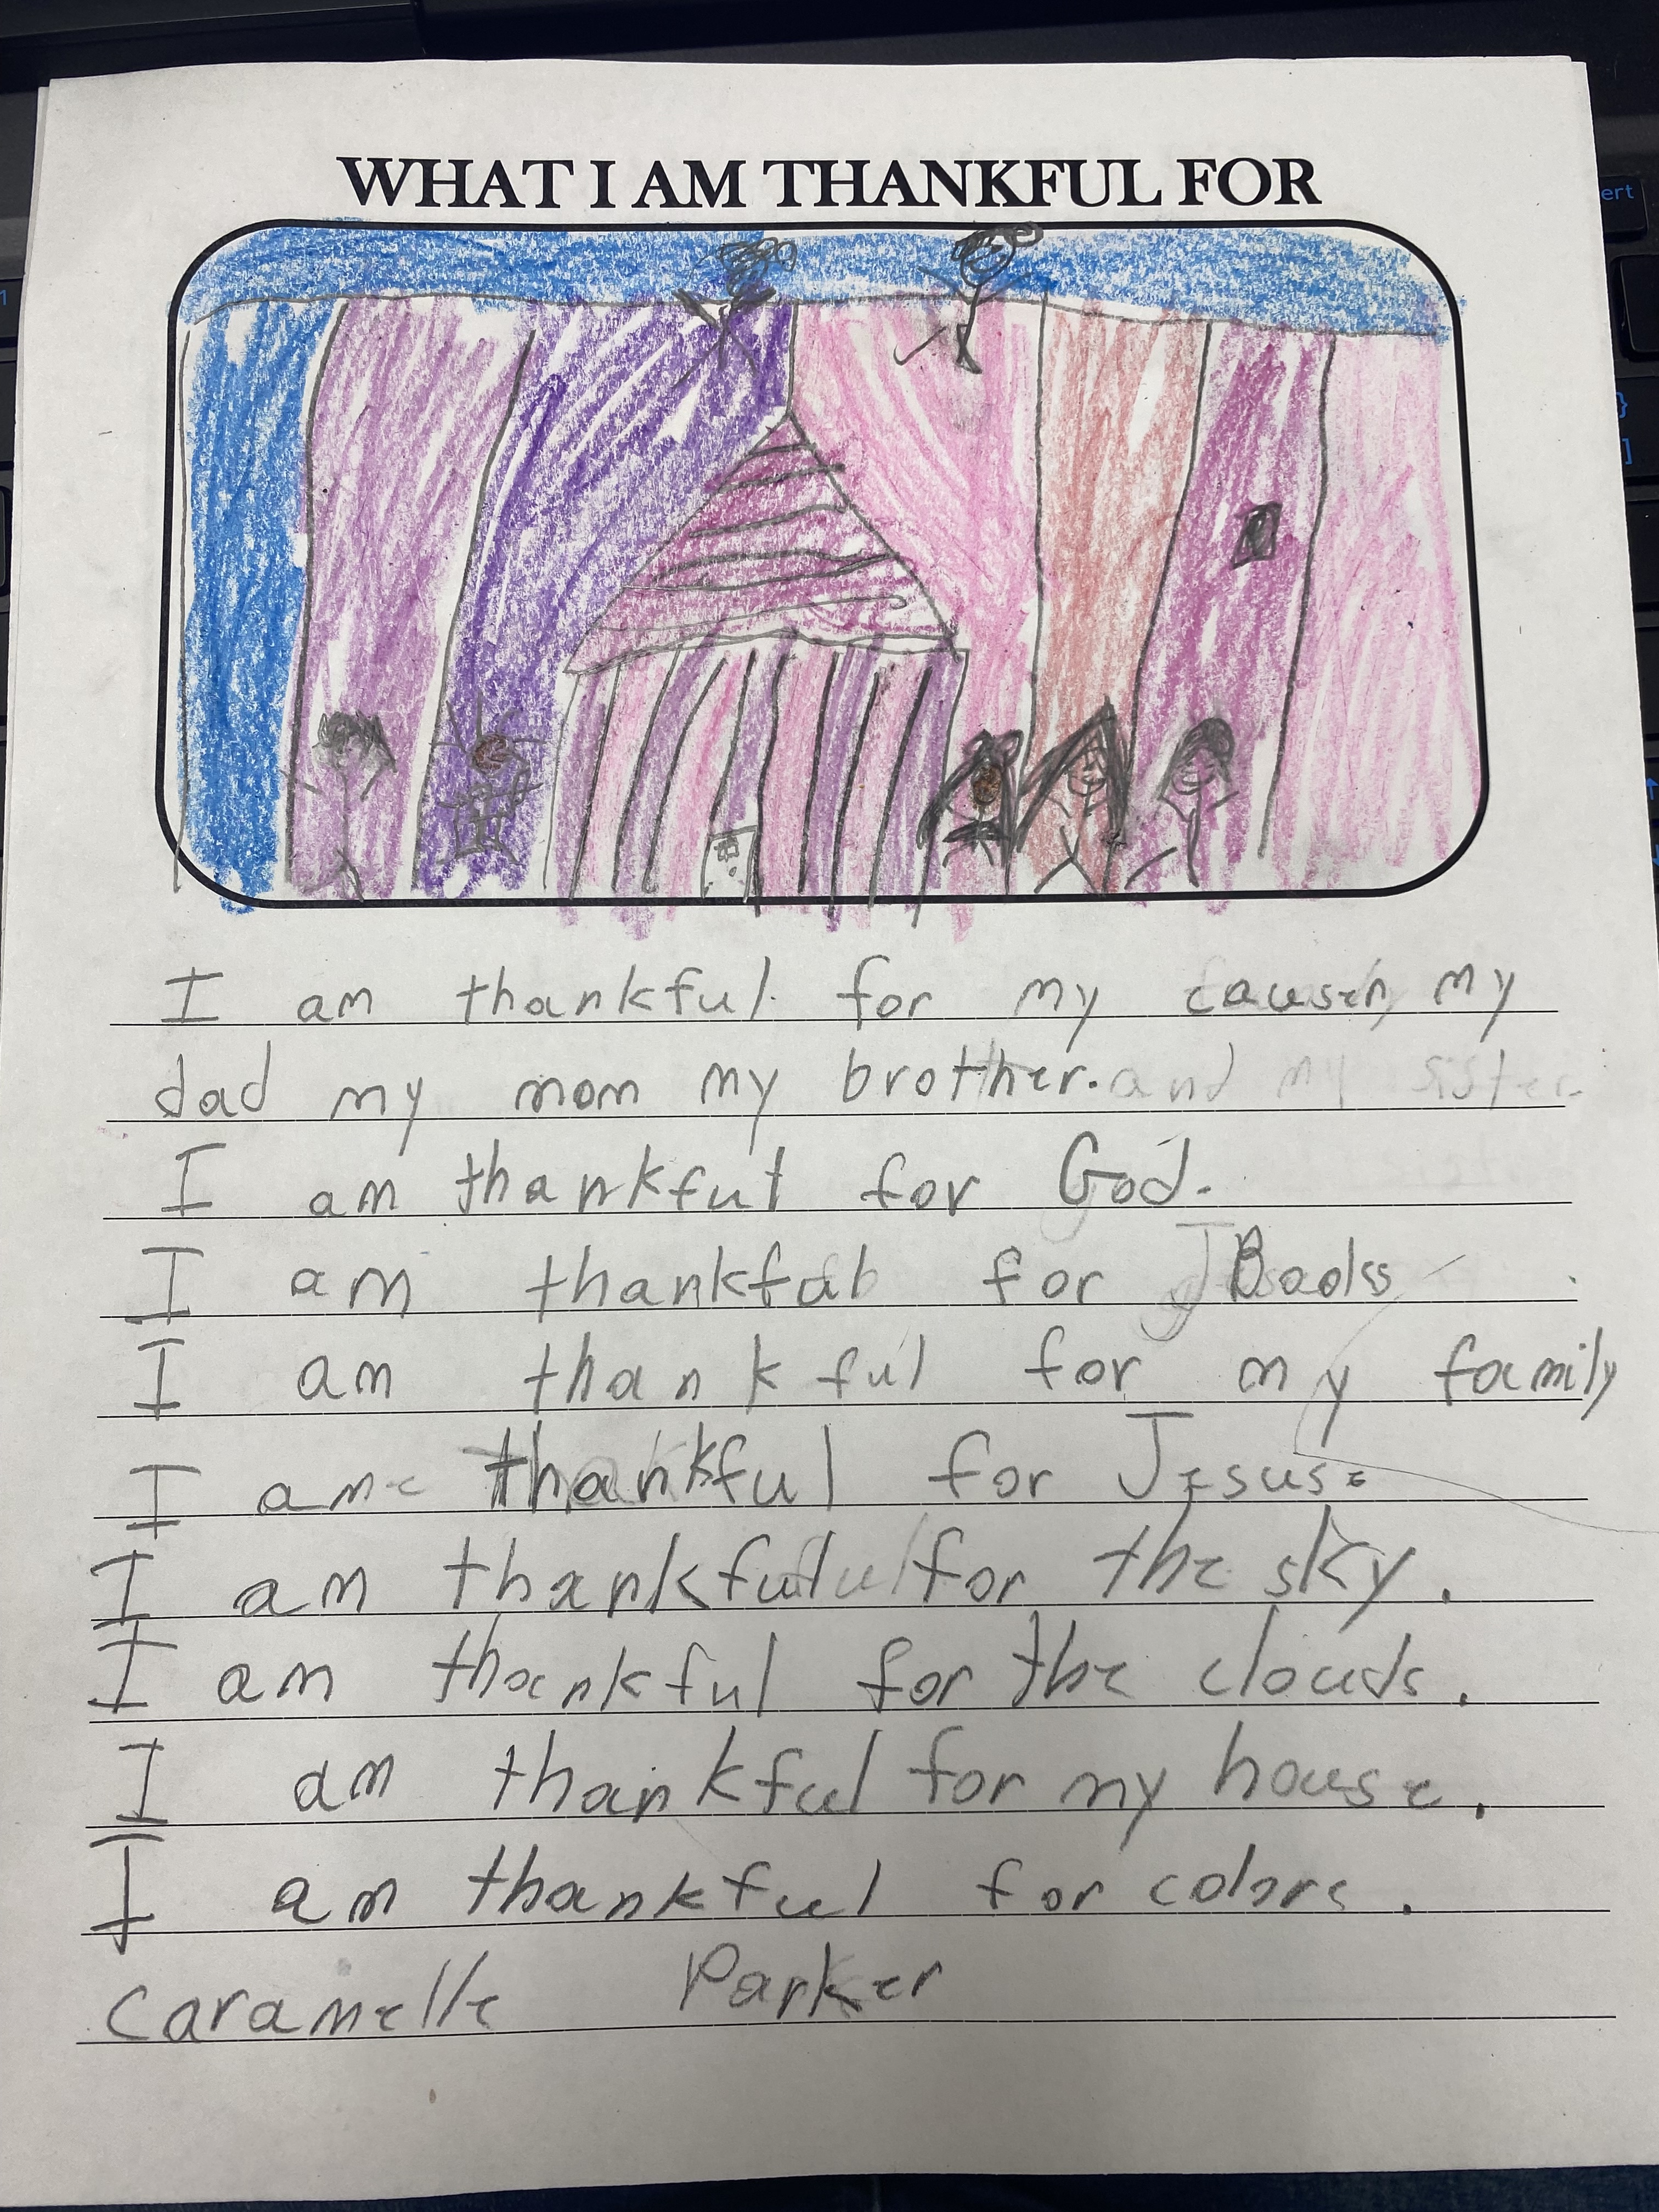 WHAT I AM THANKFUL FOR
I am thankful for my causen, my
dad my mom my brother. and my sister.
I am thankful for God.
I am thankful for Books
I am thankful for my family
I am thankful for Jesus.
I am thankful for the sky.
I am thankful for the clouds.
I am thankful for my house.
I am thankful for colors.
Caramelle Parker